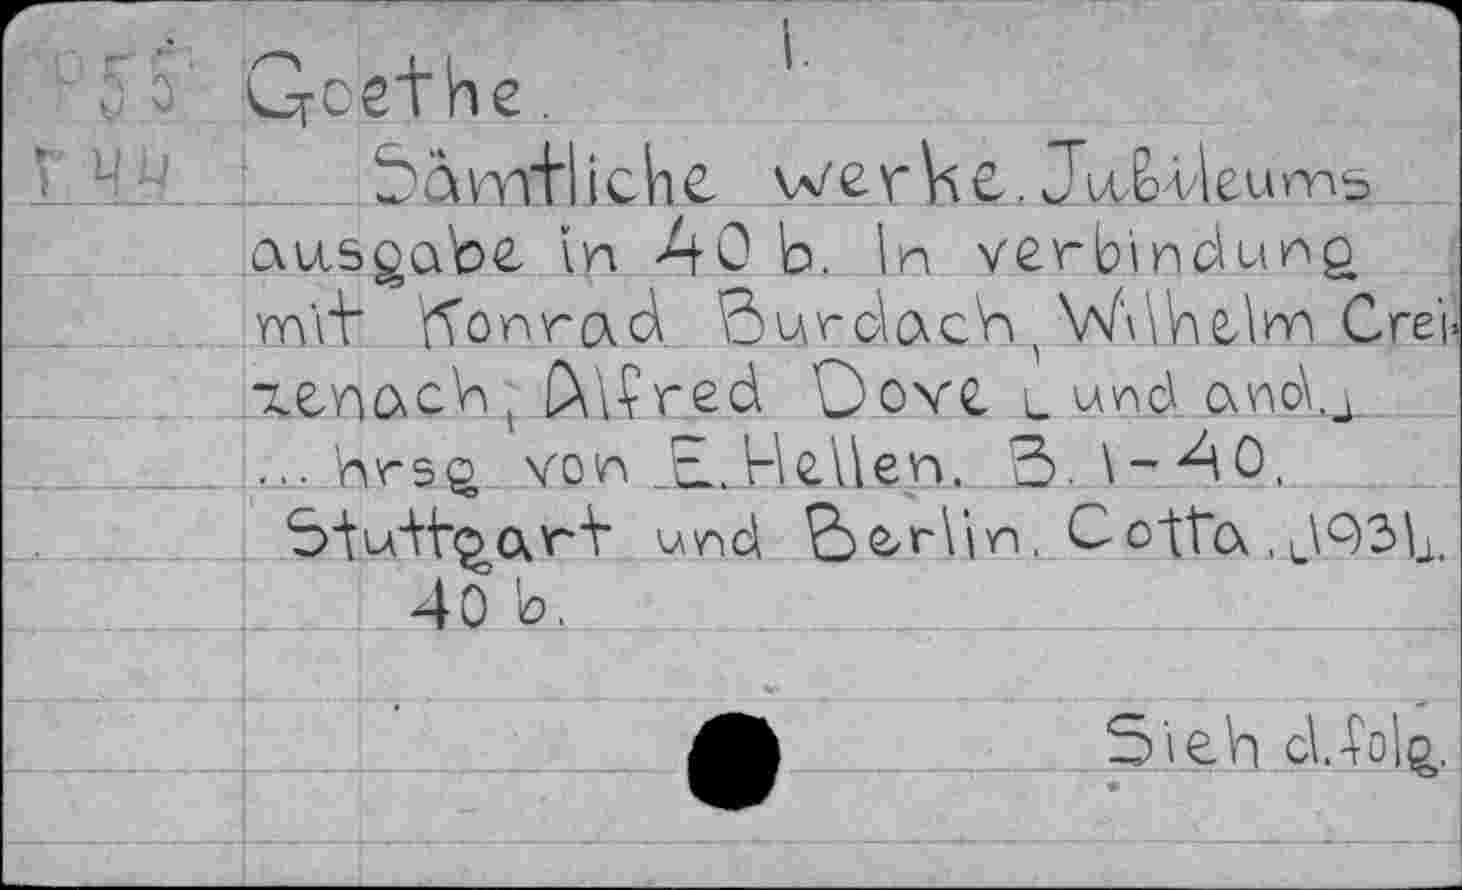 1.
55 Goethe.
Г 44 Sämtliche werke. Jubileums
ausgabe in 40 b. In verbindung
mit Konrad Burdach, Wilhelm Crei-
zenach, Alfred Dove [und and.]
... hrsg von E. Hellen. B. 1-40.
Stuttgart und Berlin. Cotta. [193 1].
40 b.
Sieh d. folg.